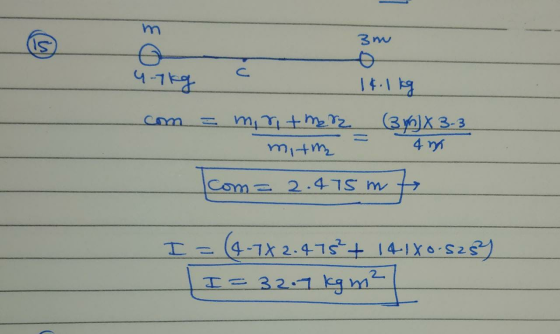 15 m 3m
4.7kg c 14.1 kg
com = m₁r₁+m₂r₂ / m₁+m₂ = (3m)×3.3 / 4m
Com = 2.475 m →
I = (4.7×2.475² + 14.1×0.525²)
I = 32.7 kgm²